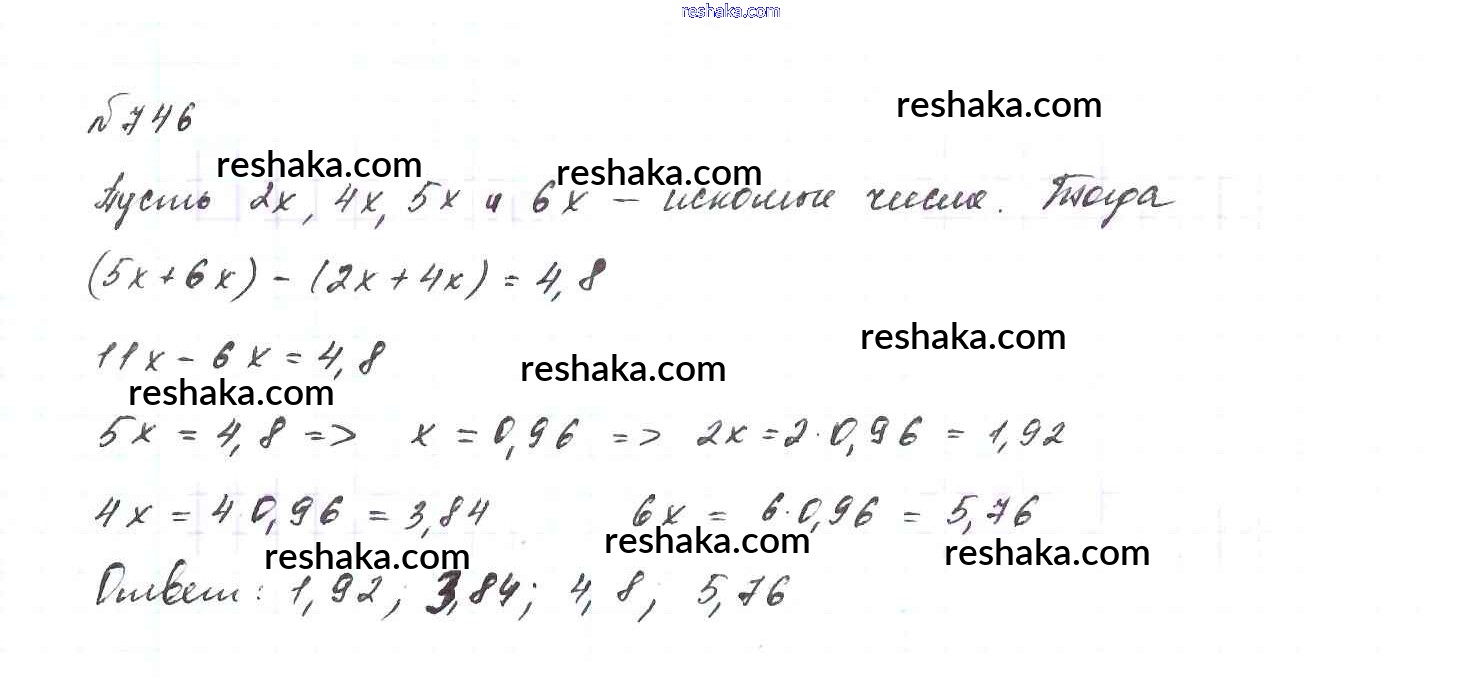 reshaka.com
№746
reshaka.com
reshaka.com
reshaka.com
Пусть 2x, 4x, 5x и 6x – искомые числа. Тогда
(5x+6x) - (2x+4x) = 4,8
reshaka.com
11x - 6x = 4,8
reshaka.com
reshaka.com
5x = 4,8 => x = 0,96 => 2x = 2·0,96 = 1,92
4x = 4·0,96 = 3,84 6x = 6·0,96 = 5,76
reshaka.com
reshaka.com
reshaka.com
Ответ: 1,92; 3,84; 4,8; 5,76